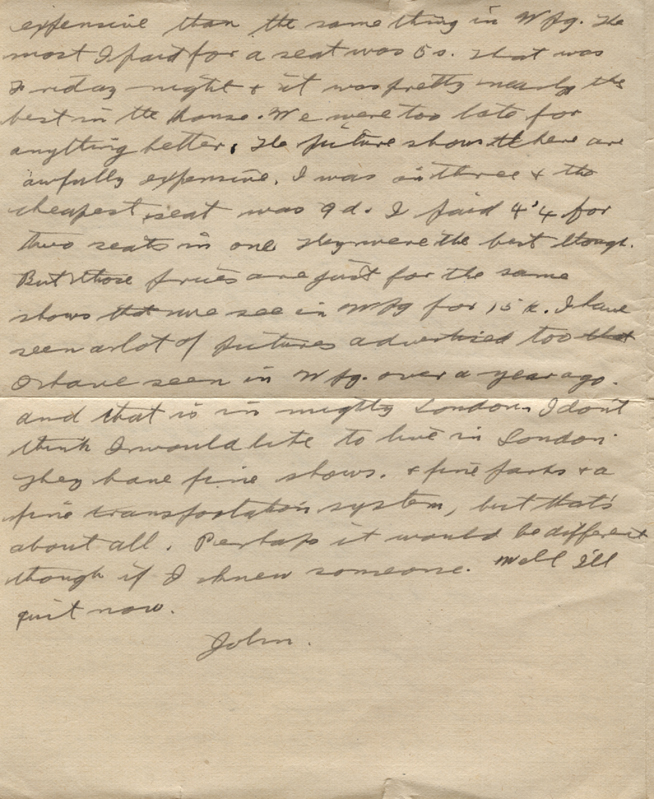 expensive than the same thing in Wpg. The
most I paid for a seat was 5 s. That was
Friday night + it was pretty nearly the
best in the house. We were too late for
anything better. The picture shows there are
awfully expensive. I was in three + the
cheapest seat was 9 d. I paid 4'4 for
two seats in one they were the best though.
But those prices are just for the same
shows that we see in Wpg for 15 ¢. I have
seen a lot of pictures advertised too that
I have seen in Wpg. over a year ago.
and that is in mighty London. I don't
think I would like to live in London.
They have fine shows. + fine parks + a
fine transportation system, but that's
about all. Perhaps it would be different
though if I knew someone. Well I'll
quit now.
John.